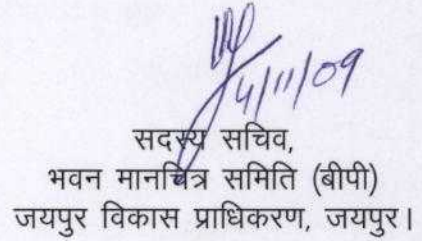 4/11/09
सदस्य सचिव,
भवन मानचित्र समिति (बीपी)
जयपुर विकास प्राधिकरण, जयपुर।